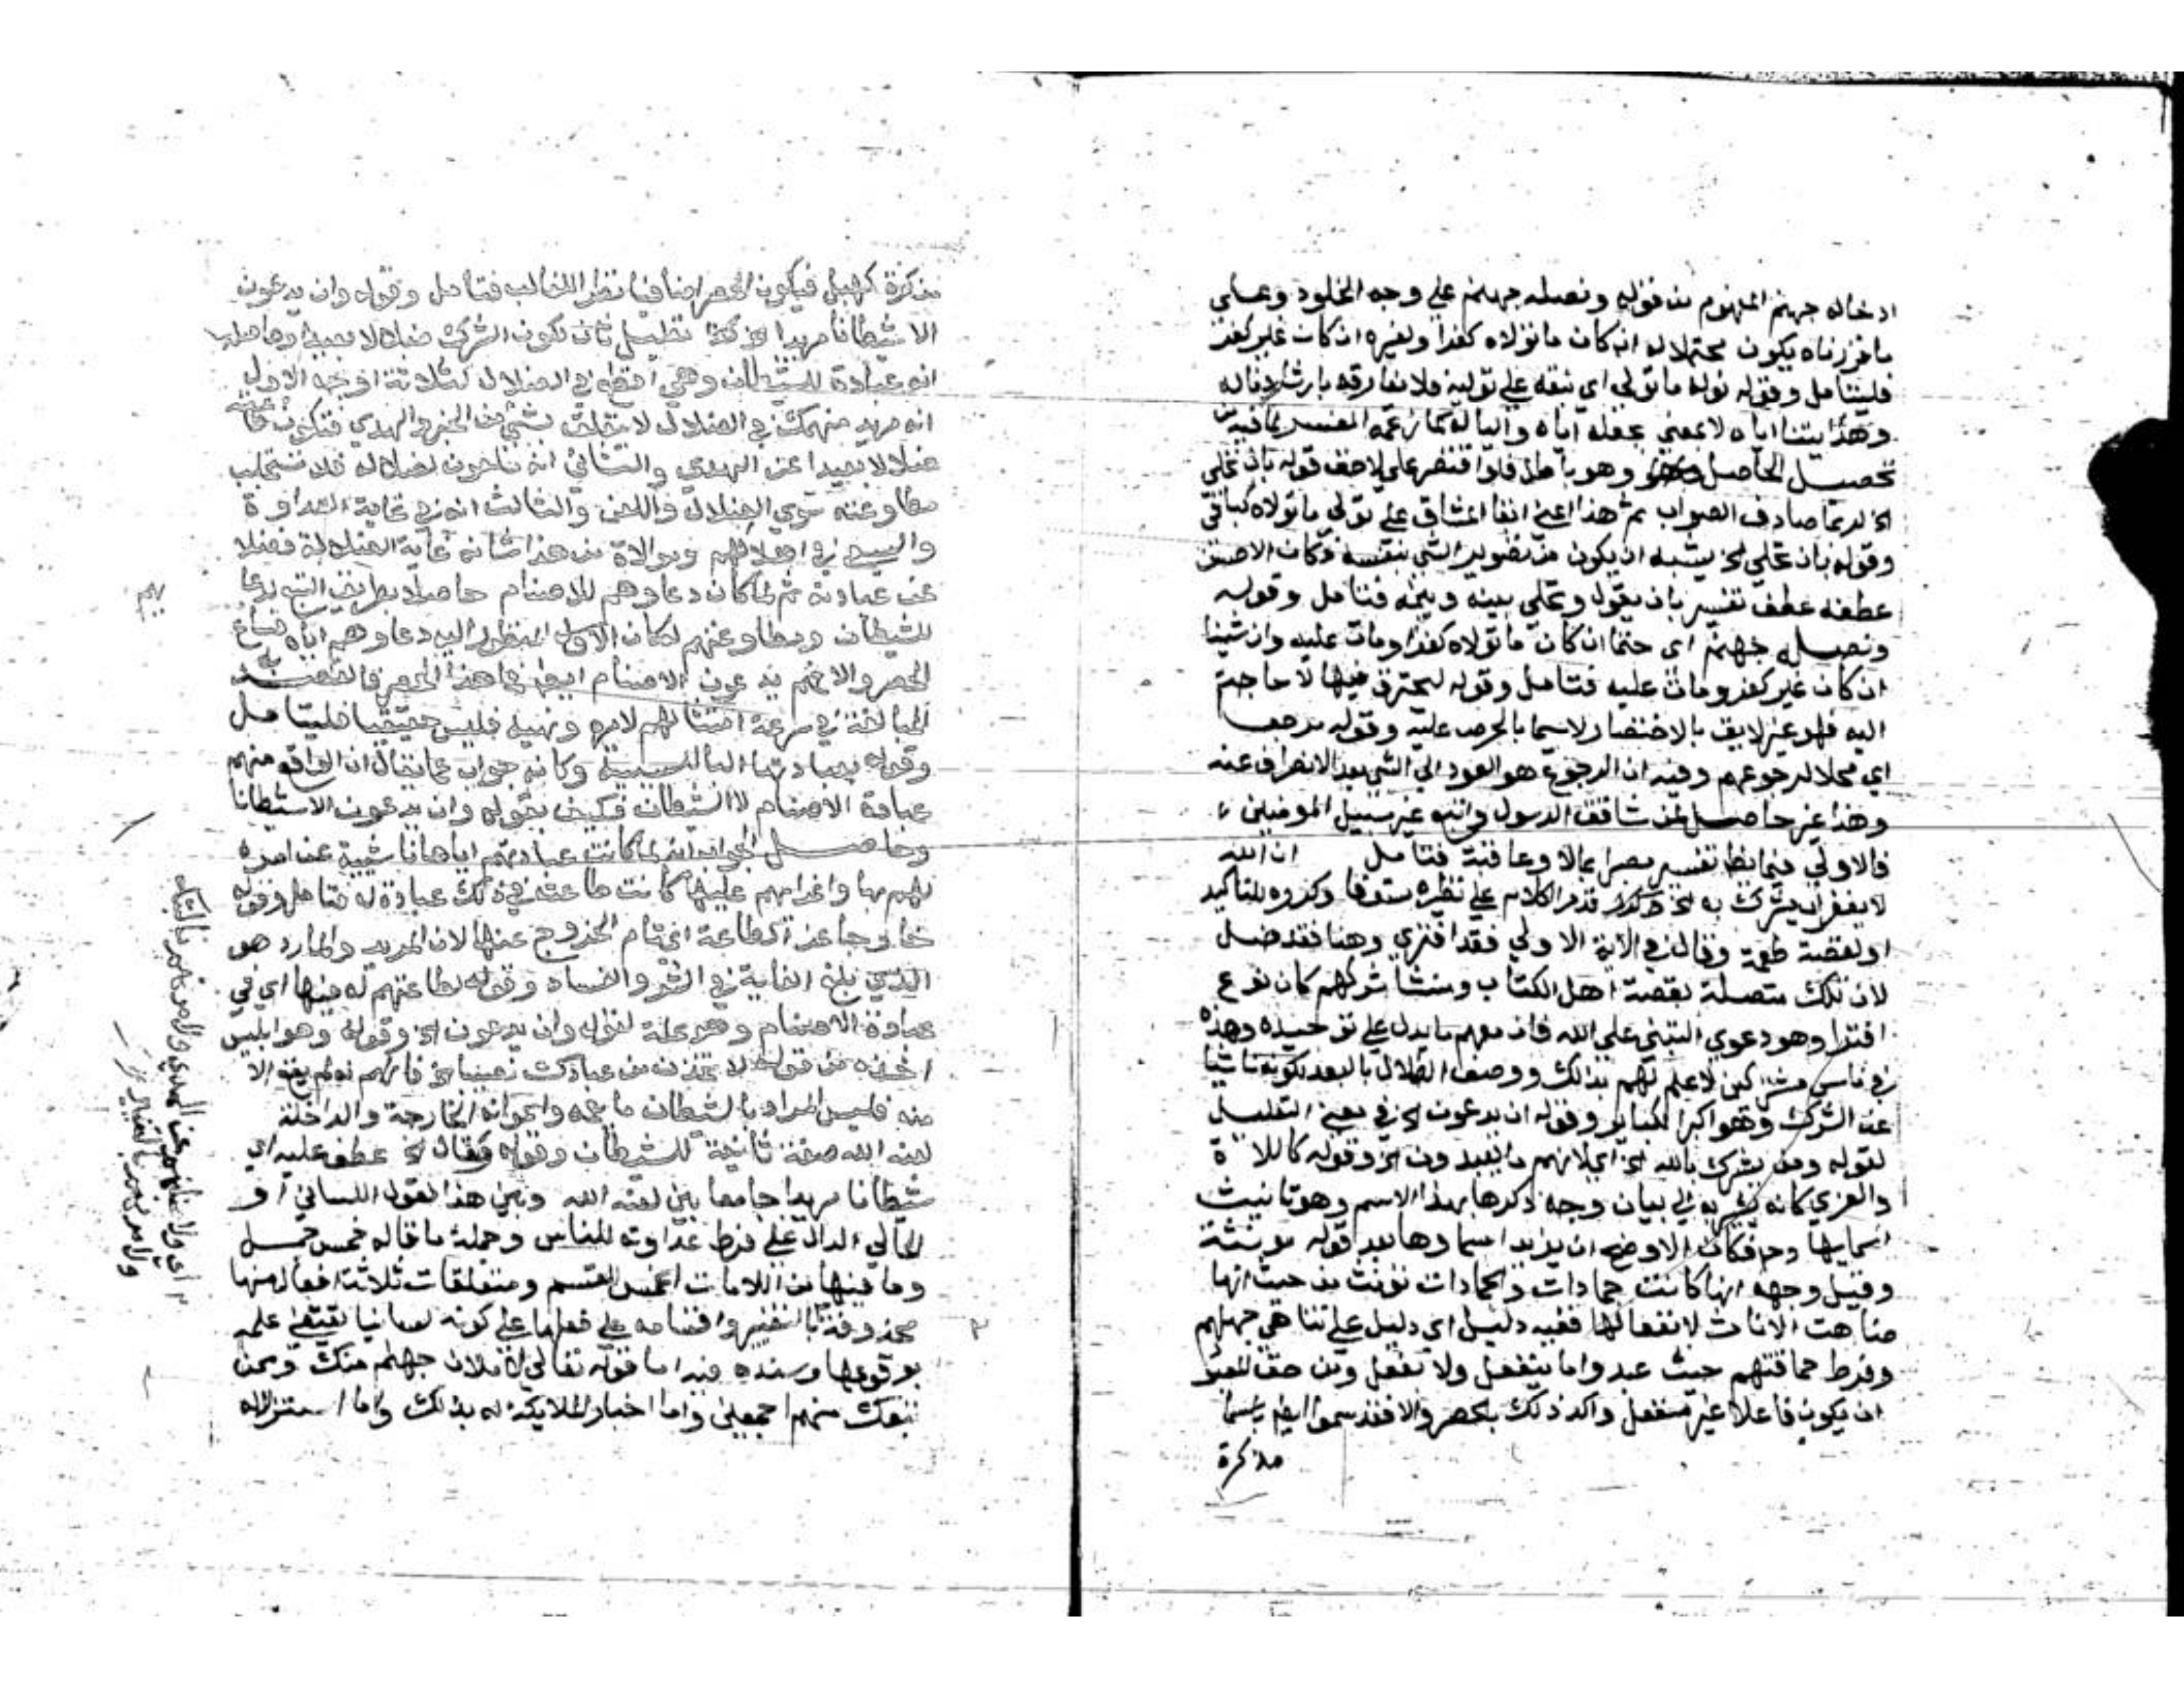 ادخاله جهنم المفهوم من قوله ونصله جهنم على وجه الخلود وعلى
ما قررناه يكون محتملا له ان كان ما تولاه كفرا ولغيره ان كان غير كفر
فليتامل وقوله نوله ما تولى اي نبقه على توليه فلا نفارقه بارشادنا له
وهذا بيننا اياه لا بمعنى جعله اياه واليا له كما زعمه المفسر لما فيه من
تحصيل الحاصل وهو باطل فلو اقتصر على لاحق قوله بان نخلي
الخ لربما صادف الصواب ثم هذا اعني ابقا المشاق على تولي ما تولاه
وقوله بان نخلي الخ يشبه ان يكون من تصوير الشي بنفسه فكان الاحسن
عطفه عطف تفسير بان يقول ونخلي بينه وبينه فتامل وقوله
ونصله جهنم اي حتما ان كان ما تولاه كفرا ومات عليه وان شينا
ان كان غير كفر ومات عليه فتامل وقوله ليحترق فيها لا حاجة
اليه فهو غير لايق بالاختصار لاسيما بالحرص عليه وقوله مرجعا
اي محلا لرجوعهم وفيه ان الرجوع هو العود الى الشي بعد الانصراف عنه
وهذا غير حاصل لمن شاقق الرسول واتبع غير سبيل المومنين
فالاولى تفسير مصيرا بمالا وعاقبة فتامل ان الله
لا يغفر ان يشرك به الخ قدم الكلام على نظيره مستوفا وكرره للتاكيد
او لقصة طعمة وقال في الاية الاولى فقد افترى وهنا فقد ضل
لان تلك متصلة بقصة اهل الكتاب ومنشا شركهم كان نوع
افترا وهو دعوى التبني على الله فان معهم ما يدل على توحيده وهذه
في ناس مشركين لا علم لهم بذلك ووصف الضلال بالبعد لكونه ناشيا
عن الشرك وهو اكبر الكباير وقوله ان يدعون الخ في معنى التعليل
لقوله ومن يشرك بالله الخ اي لانهم ما يعبدون الخ وقوله كاللاة
والعزى كانه يشير به الى بيان وجه ذكرها بهذا الاسم وهو تانيث
اسمايها وح فكان الاوضح ان يزيد اسماوها بعد قوله مونثة
وقيل وجهه انها كانت جمادات والجمادات تونث من حيث انها
ضاهت الاناث لانفعالها ففيه دليل اي دليل على تناهي جهلهم
وفرط حماقتهم حيث عبدوا ما ينفعل ولا يفعل ومن حق المعبود
ان يكون فاعلا غير منفعل واكد ذلك بالحصر والا فقد سموا ايضا باسما
مذكرة
مذكرة كهبل فيكون الحصر اضافيا نظرا للغالب فتامل وقوله وان يدعون
الا شيطانا مريدا الخ تعليل ثان لكون الشرك ضلالا بعيدا وحاصله
انه عبادة للشيطان وهي افظع في الضلال لثلاثة اوجه الاول
انه مريد منهمك في الضلال لا يتعلق بشي من الخير والهدى فتكون طاعته
ضلالا بعيدا عن الهدى والثاني انه ملعون لضلاله فلا تستجلب
مطاوعته سوى الضلال واللعن والثالث انه في غاية العداوة
والسعي في اهلاكهم وموالاة من هذا شانه غاية الضلالة فضلا
عن عبادته ثم لما كان دعاوهم للاصنام حاصلا بطريق التبع لدعا
للشيطان ومطاوعتهم لكان الاولى المنظور اليه دعاوهم اياه ساغ
الحصر والا فهم يدعون الاصنام ايضا فما هذا الحصر فالقصد به
المبالغة في سرعة امتثالهم لامره ونهيه فليس حقيقيا فليتامل
وقوله بعبادتها البا للسببية وكانه جواب عما يقال ان الواقع منهم
عبادة الاصنام لا الشيطان فكيف بقوله وان يدعون الا شيطانا
وحاصل الجواب انه لما كانت عبادتهم اياها ناشية عن امره
لهم بها واغرايهم عليها كانت طاعته في ذلك عبادة له فتامل وقوله
خارجا عن الطاعة اي تمام الخروج عنها لان المريد والمارد هو
الذي بلغ الغاية في الشر والفساد وقوله لطاعتهم له فيها اي في
عبادة الاصنام وهو علة لقوله وان يدعون الخ وقوله وهو ابليس
اخذه من قوله لاتخذن من عبادك نصيبا الخ فانه لم يقع الا
منه فليس المراد بالشيطان ما يعمه واعوانه الخارجة والداخلة
لعنه الله صفة ثانية للشيطان وقوله وقال الخ عطف عليه اي
شيطانا مريدا جامعا بين لعنة الله وبين هذا القول اللساني او
الحالي الدال على فرط عداوته للناس وجملة ما قاله خمس جمل
وما فيها من اللامات الخمس للقسم ومتعلقات ثلاثة افعال منها
محذوفة بالتفسير واقتسامه على فعلها على كونه لسانيا يقتضي علمه
بوقوعها وسنده فيه اما قوله تعالى لاملان جهنم منك وممن
تبعك منهم اجمعين واما اخبار الملايكة له بذلك واما استنزاله
اي ولاضلنهم عن الهدى ولامرنهم بالبتك
ولامرنهم بالتغيير